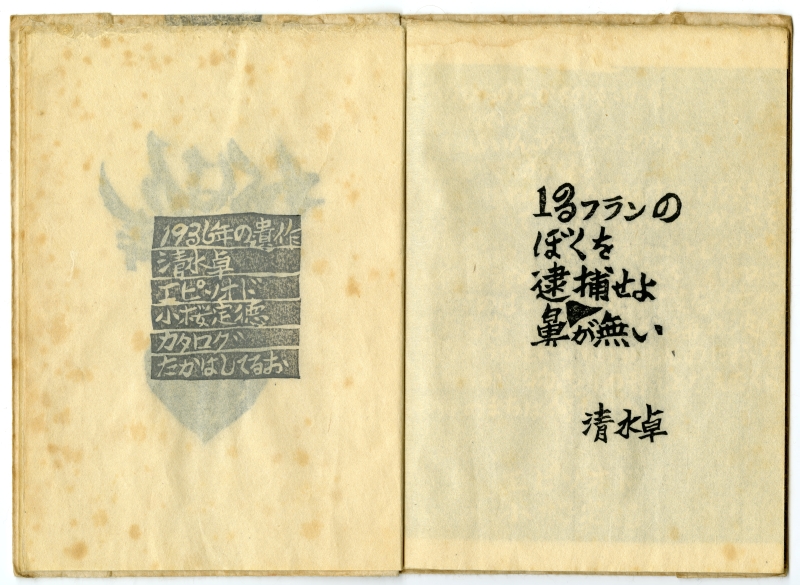 1936年の遺作
清水卓
エピソオド
小桜定徳
カタログ
たかはしてるお
フランの
ぼくを
逮捕せよ
鼻が無い
清水卓